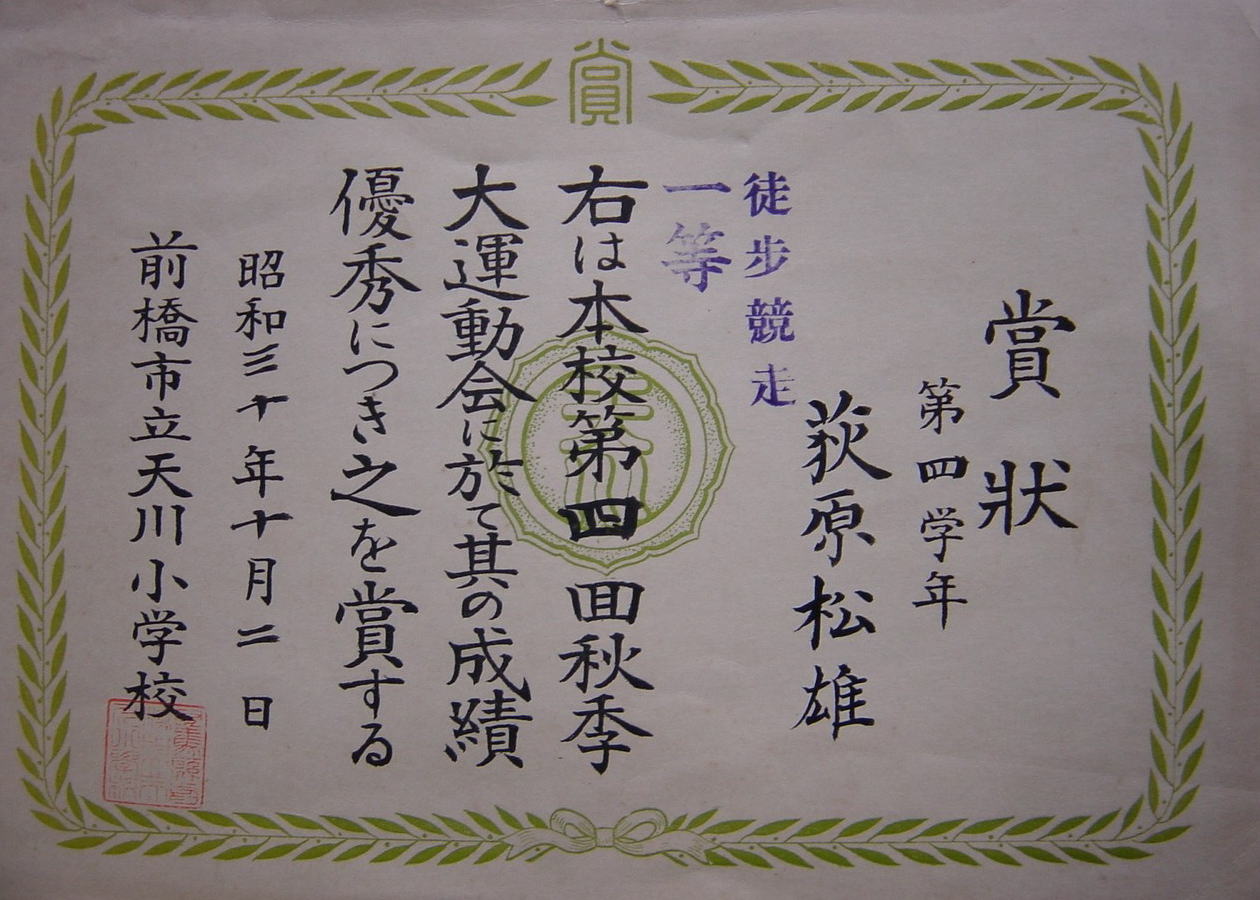 賞
賞状
第四学年
荻原松雄
徒歩競走
一等
右は本校第四回秋季
大運動会に於て其の成績
優秀につき之を賞する
昭和三十年十月二日
前橋市立天川小学校